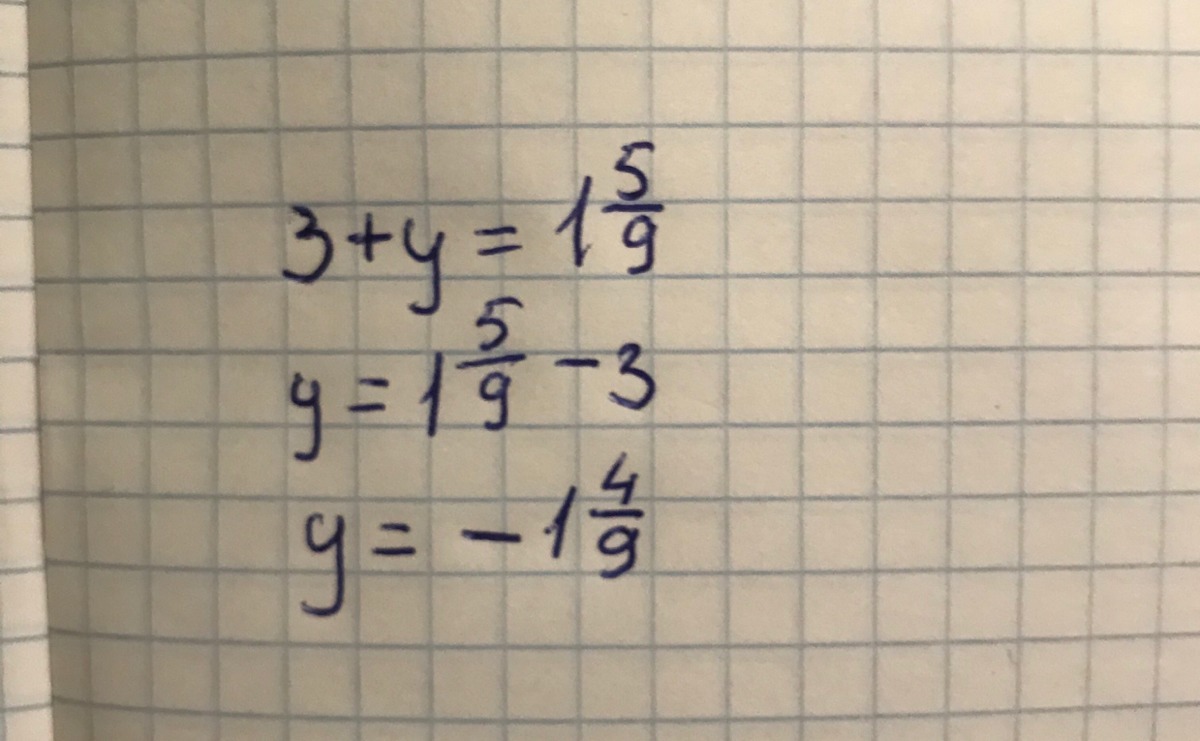 3+y = 1 5/9
y = 1 5/9 - 3
y = - 1 4/9